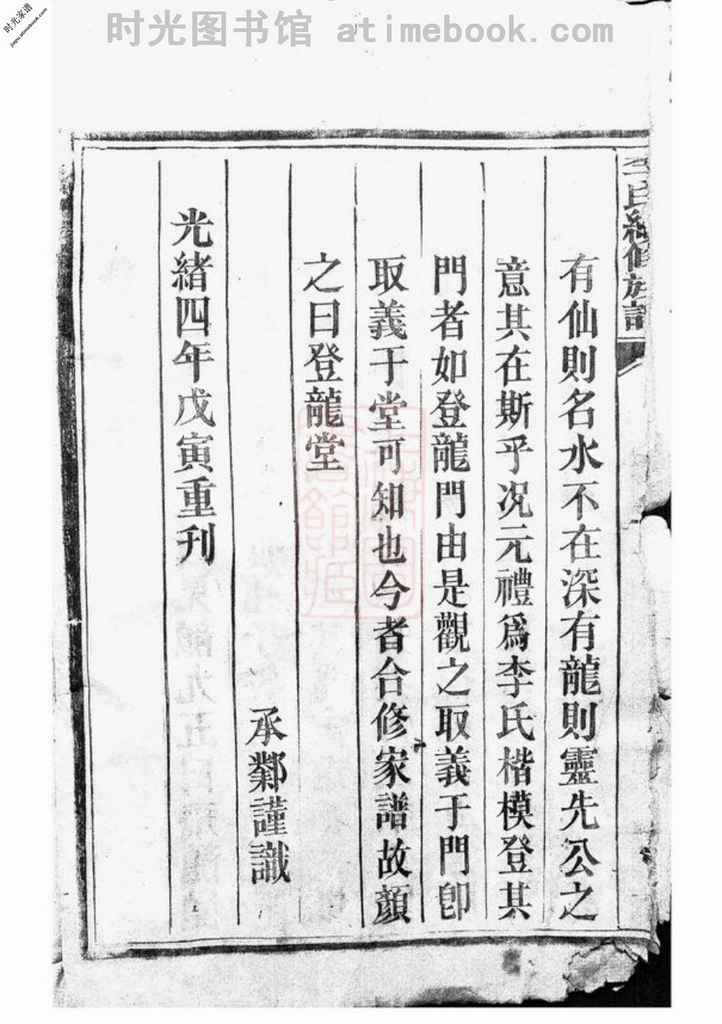 时光图书馆 atimebook.com
时光家谱
jiapu.atimebook.com
氏續修族譜
有仙則名水不在深有龍則靈先公之
意其在斯乎况元禮爲李氏楷模登其
門者如登龍門由是觀之取義于門卽
取義于堂可知也今者合修家譜故顔
之曰登龍堂
承鄴謹識
光緒四年戊寅重刊